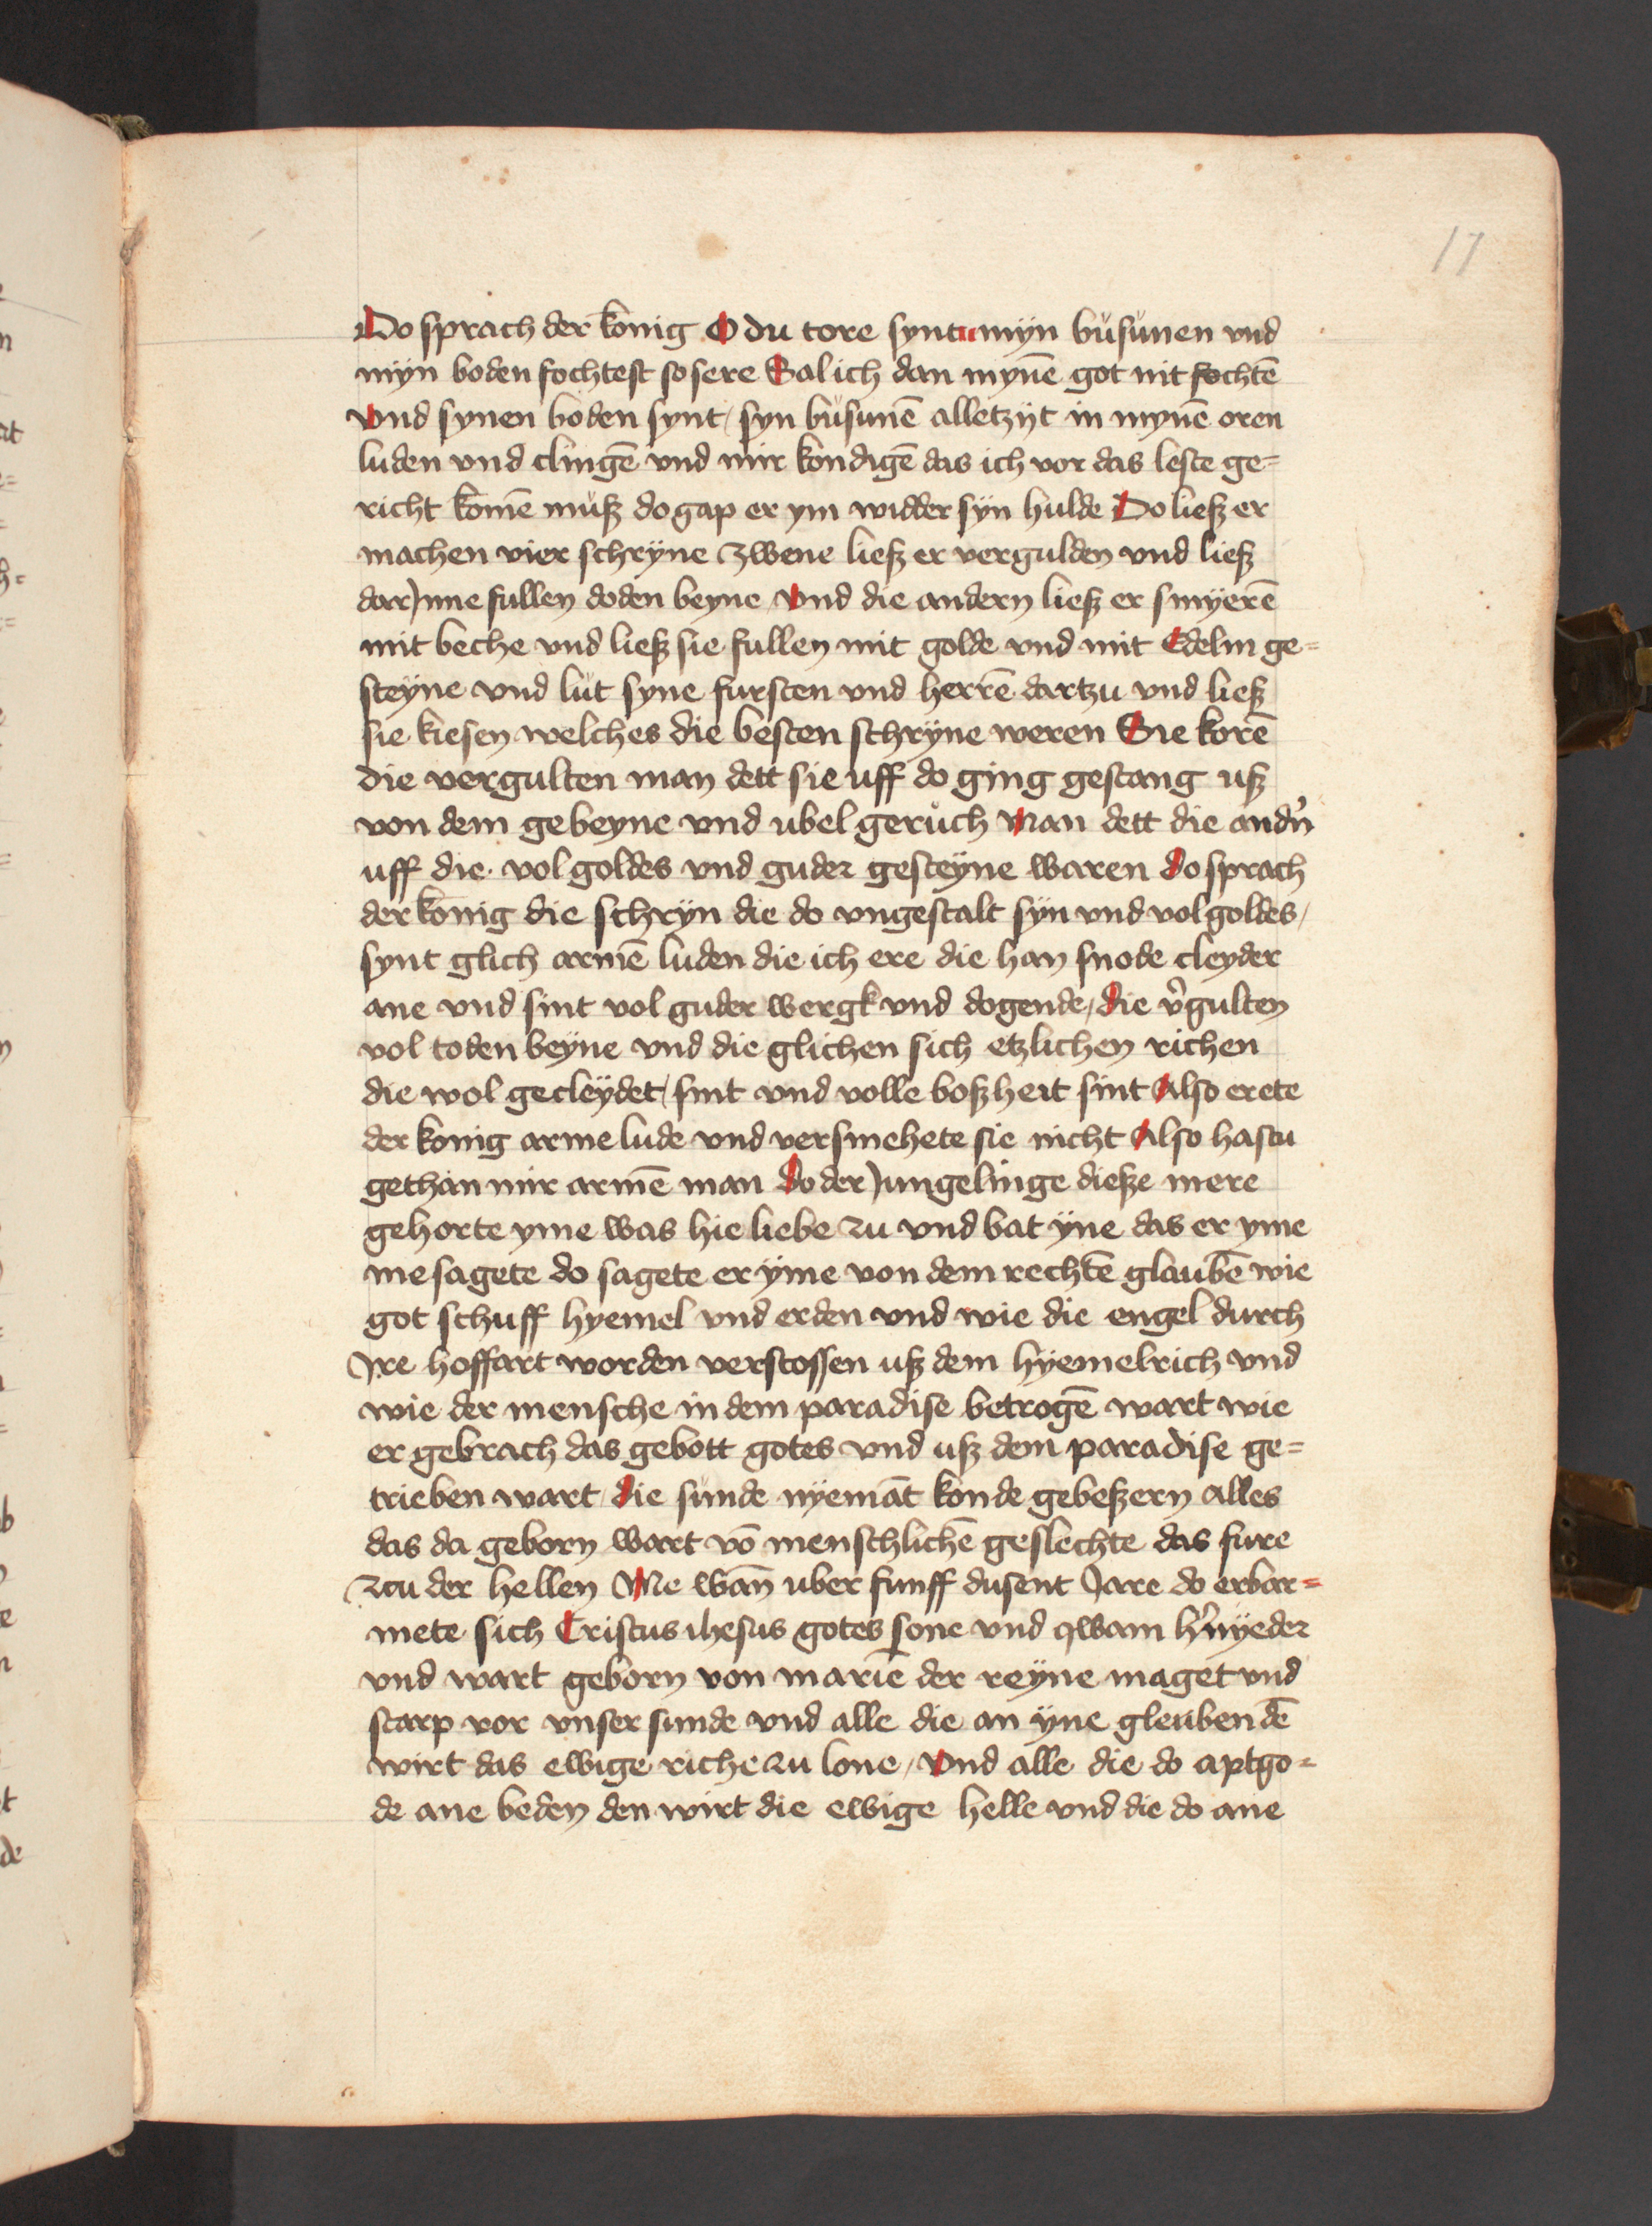 17
Do sprach der konig O du tore synt myn busunen vnd
myn boden fochtest so sere Sal ich dan mynē got nit fochtē
vnd synen boden synt syn busunē alletzyt in mynē oren
luden vnd clingē vnd mir kondigē das ich vor das leste ge=
richt komē musz do gap er ym widder syn hulde Do liesz er
machen vier schryne zwene liesz er vergulden vnd liesz
dar Inne fullen doden beyne vnd die andern liesz er smyerē
mit beche vnd liesz sie fullen mit golde vnd mit Edelm ge=
steyne vnd lut syne fursten vnd herrē dartzu vnd liesz
sie kiesen welches die besten schryne weren Sie korē
die vergulten man dett sie uff do ging gestang usz
von dem gebeyne vnd ubel geruch Man dett die andn̉
uff die vol goldes vnd guder gesteyne waren do sprach
der konig die schryn die do vngestalt syn vnd vol goldes
synt glich armē luden die ich ere die han snode cleyder
ane vnd sint vol guder wergk vnd dogende die v̉gulten
vol toden beyne vnd die glichen sich etzlichen richen
die wol gecleydet sint vnd volle boszheit sint Also erete
der konig arme lude vnd versmehete sie nicht Also hastu
gethan mir armē man do der Jungelinge diesze mere
gehorte yme was hie liebe zu vnd bat yne das er yme
me sagete do sagete er yme von dem rechtē glaubē wie
got schuff hyemel vnd erden vnd wie die engel durch
Ire hoffart worden verstossen usz dem hyemelrich vnd
wie der mensche in dem paradise betrogē wart wie
er gebrach das gebott gotes vnd usz dem paradise ge=
trieben wart die sunde nyemāt konde gebeszern alles
das da geborn wart vō menschlichē geslechte das fure
zcu der hellen Me wan̄ uber funff dusent Jare do erbar=
mete sich Cristus ihesus gotes sone vnd qwam h̉nyeder
vnd wart geborn von mariē der reyne maget vnd
starp vor vnser sunde vnd alle die an yne gleuben dē
wirt das ewige riche zu lone vnd alle die do aptgo=
de ane beden den wirt die ewige helle vnd die do ane